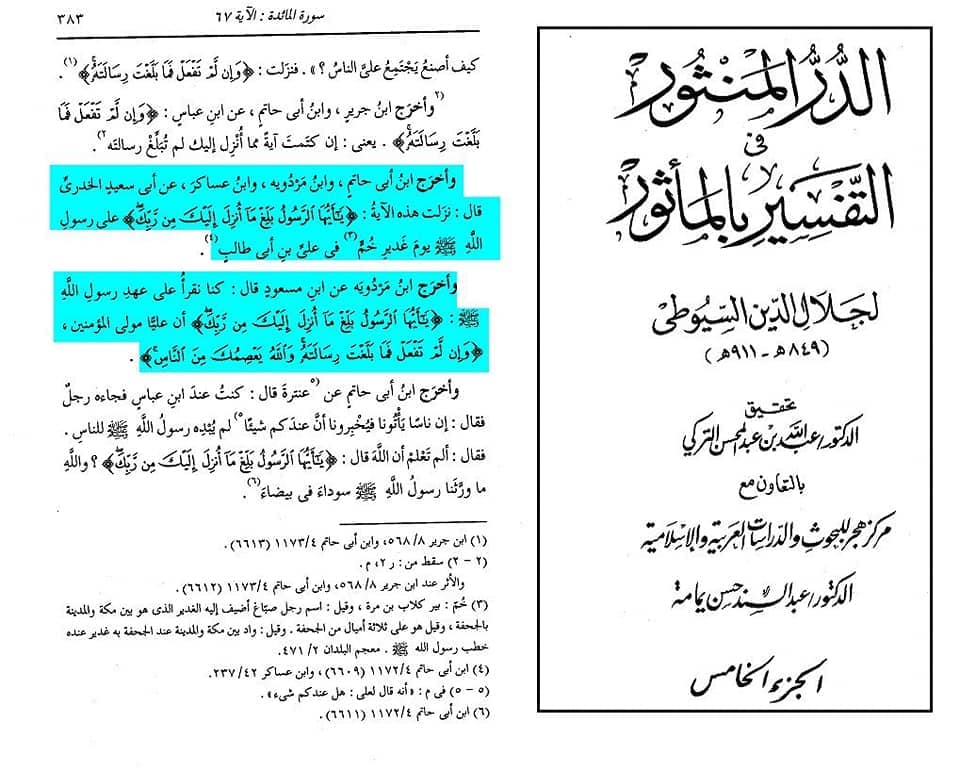 سورة المائدة : الآية ٦٧
٣٨٣
كيف أصنعُ يَجْتَمِعُ علىَّ الناسُ ؟» . فنزلت : ﴿وَإِن لَّمْ تَفْعَلْ فَمَا بَلَّغْتَ رِسَالَتَهُۥ﴾(١) .
(٢)وأخرَج ابنُ جريرٍ ، وابنُ أبى حاتمٍ ، عن ابنِ عباسٍ : ﴿وَإِن لَّمْ تَفْعَلْ فَمَا
بَلَّغْتَ رِسَالَتَهُۥ﴾ . يعنى : إن كتَمتَ آيةً مما أُنْزِل إليك لم تُبَلِّغْ رسالتَه(٢) .
وأخرَج ابنُ أبى حاتمٍ ، وابنُ مَرْدُويه ، وابنُ عساكرَ ، عن أبى سعيدٍ الخدرىِّ
قال : نزَلت هذه الآيةُ : ﴿يَٰٓأَيُّهَا ٱلرَّسُولُ بَلِّغْ مَآ أُنزِلَ إِلَيْكَ مِن رَّبِّكَ﴾ على رسولِ
اللَّهِ ﷺ يومَ غَديرِ خُمٍّ(٣) فى علىِّ بنِ أبى طالبٍ(٤) .
وأخرَج ابنُ مَرْدُويَه عن ابنِ مسعودٍ قال : كنا نقرأُ على عهدِ رسولِ اللَّهِ
ﷺ : ﴿يَٰٓأَيُّهَا ٱلرَّسُولُ بَلِّغْ مَآ أُنزِلَ إِلَيْكَ مِن رَّبِّكَ﴾ أن عليًّا مولى المؤمنين ،
﴿وَإِن لَّمْ تَفْعَلْ فَمَا بَلَّغْتَ رِسَالَتَهُۥ وَٱللَّهُ يَعْصِمُكَ مِنَ ٱلنَّاسِ﴾ .
وأخرَج ابنُ أبى حاتمٍ عن (٥)عنترةَ قال : كنتُ عندَ ابنِ عباسٍ فجاءه رجلٌ
فقال : إن ناسًا يأْتُونا فيُخْبِرونا أنَّ عندَكم شيئًا(٥) لم يُبْدِه رسولُ اللَّهِ ﷺ للناسِ .
فقال : ألم تَعْلَمْ أن اللَّهَ قال : ﴿يَٰٓأَيُّهَا ٱلرَّسُولُ بَلِّغْ مَآ أُنزِلَ إِلَيْكَ مِن رَّبِّكَ﴾ ؟ واللَّهِ
ما ورَّثَنا رسولُ اللَّهِ ﷺ سوداءَ فى بيضاءَ(٦) .
(١) ابن جرير ٥٦٨/٨، وابن أبى حاتم ١١٧٣/٤ (٦٦١٣) .
(٢ - ٢) سقط من : ر ٢، م .
والأثر عند ابن جرير ٥٦٨/٨، وابن أبى حاتم ١١٧٣/٤ (٦٦١٢) .
(٣) خُمّ : بير كلاب بن مرة ، وقيل : اسم رجل صبّاغ أضيف إليه الغدير الذى هو بين مكة والمدينة
بالجحفة ، وقيل هو على ثلاثة أميال من الجحفة . وقيل : واد بين مكة والمدينة عند الجحفة به غدير عنده
خطب رسول الله ﷺ . معجم البلدان ٢/ ٤٧١.
(٤) ابن أبى حاتم ١١٧٢/٤ (٦٦٠٩) ، وابن عساكر ٤٢/ ٢٣٧.
(٥ - ٥) فى م : «أنه قال لعلى : هل عندكم شىء» .
(٦) ابن أبى حاتم ١١٧٢/٤ (٦٦١١) .
الدُّرُّ المَنْثُور
فى
التَّفْسِيرِ بِالمَأْثُورِ
لجلال الدين السّيُوطى
(٨٤٩هـ - ٩١١هـ)
تحقيق
الدكتور/عبد الله بن عبد المحسن التركي
بالتعاون مع
مركز هجر للبحوث والدراسات العربية والإسلامية
الدكتور/عبد السند حسن يمامة
الجزء الخامس